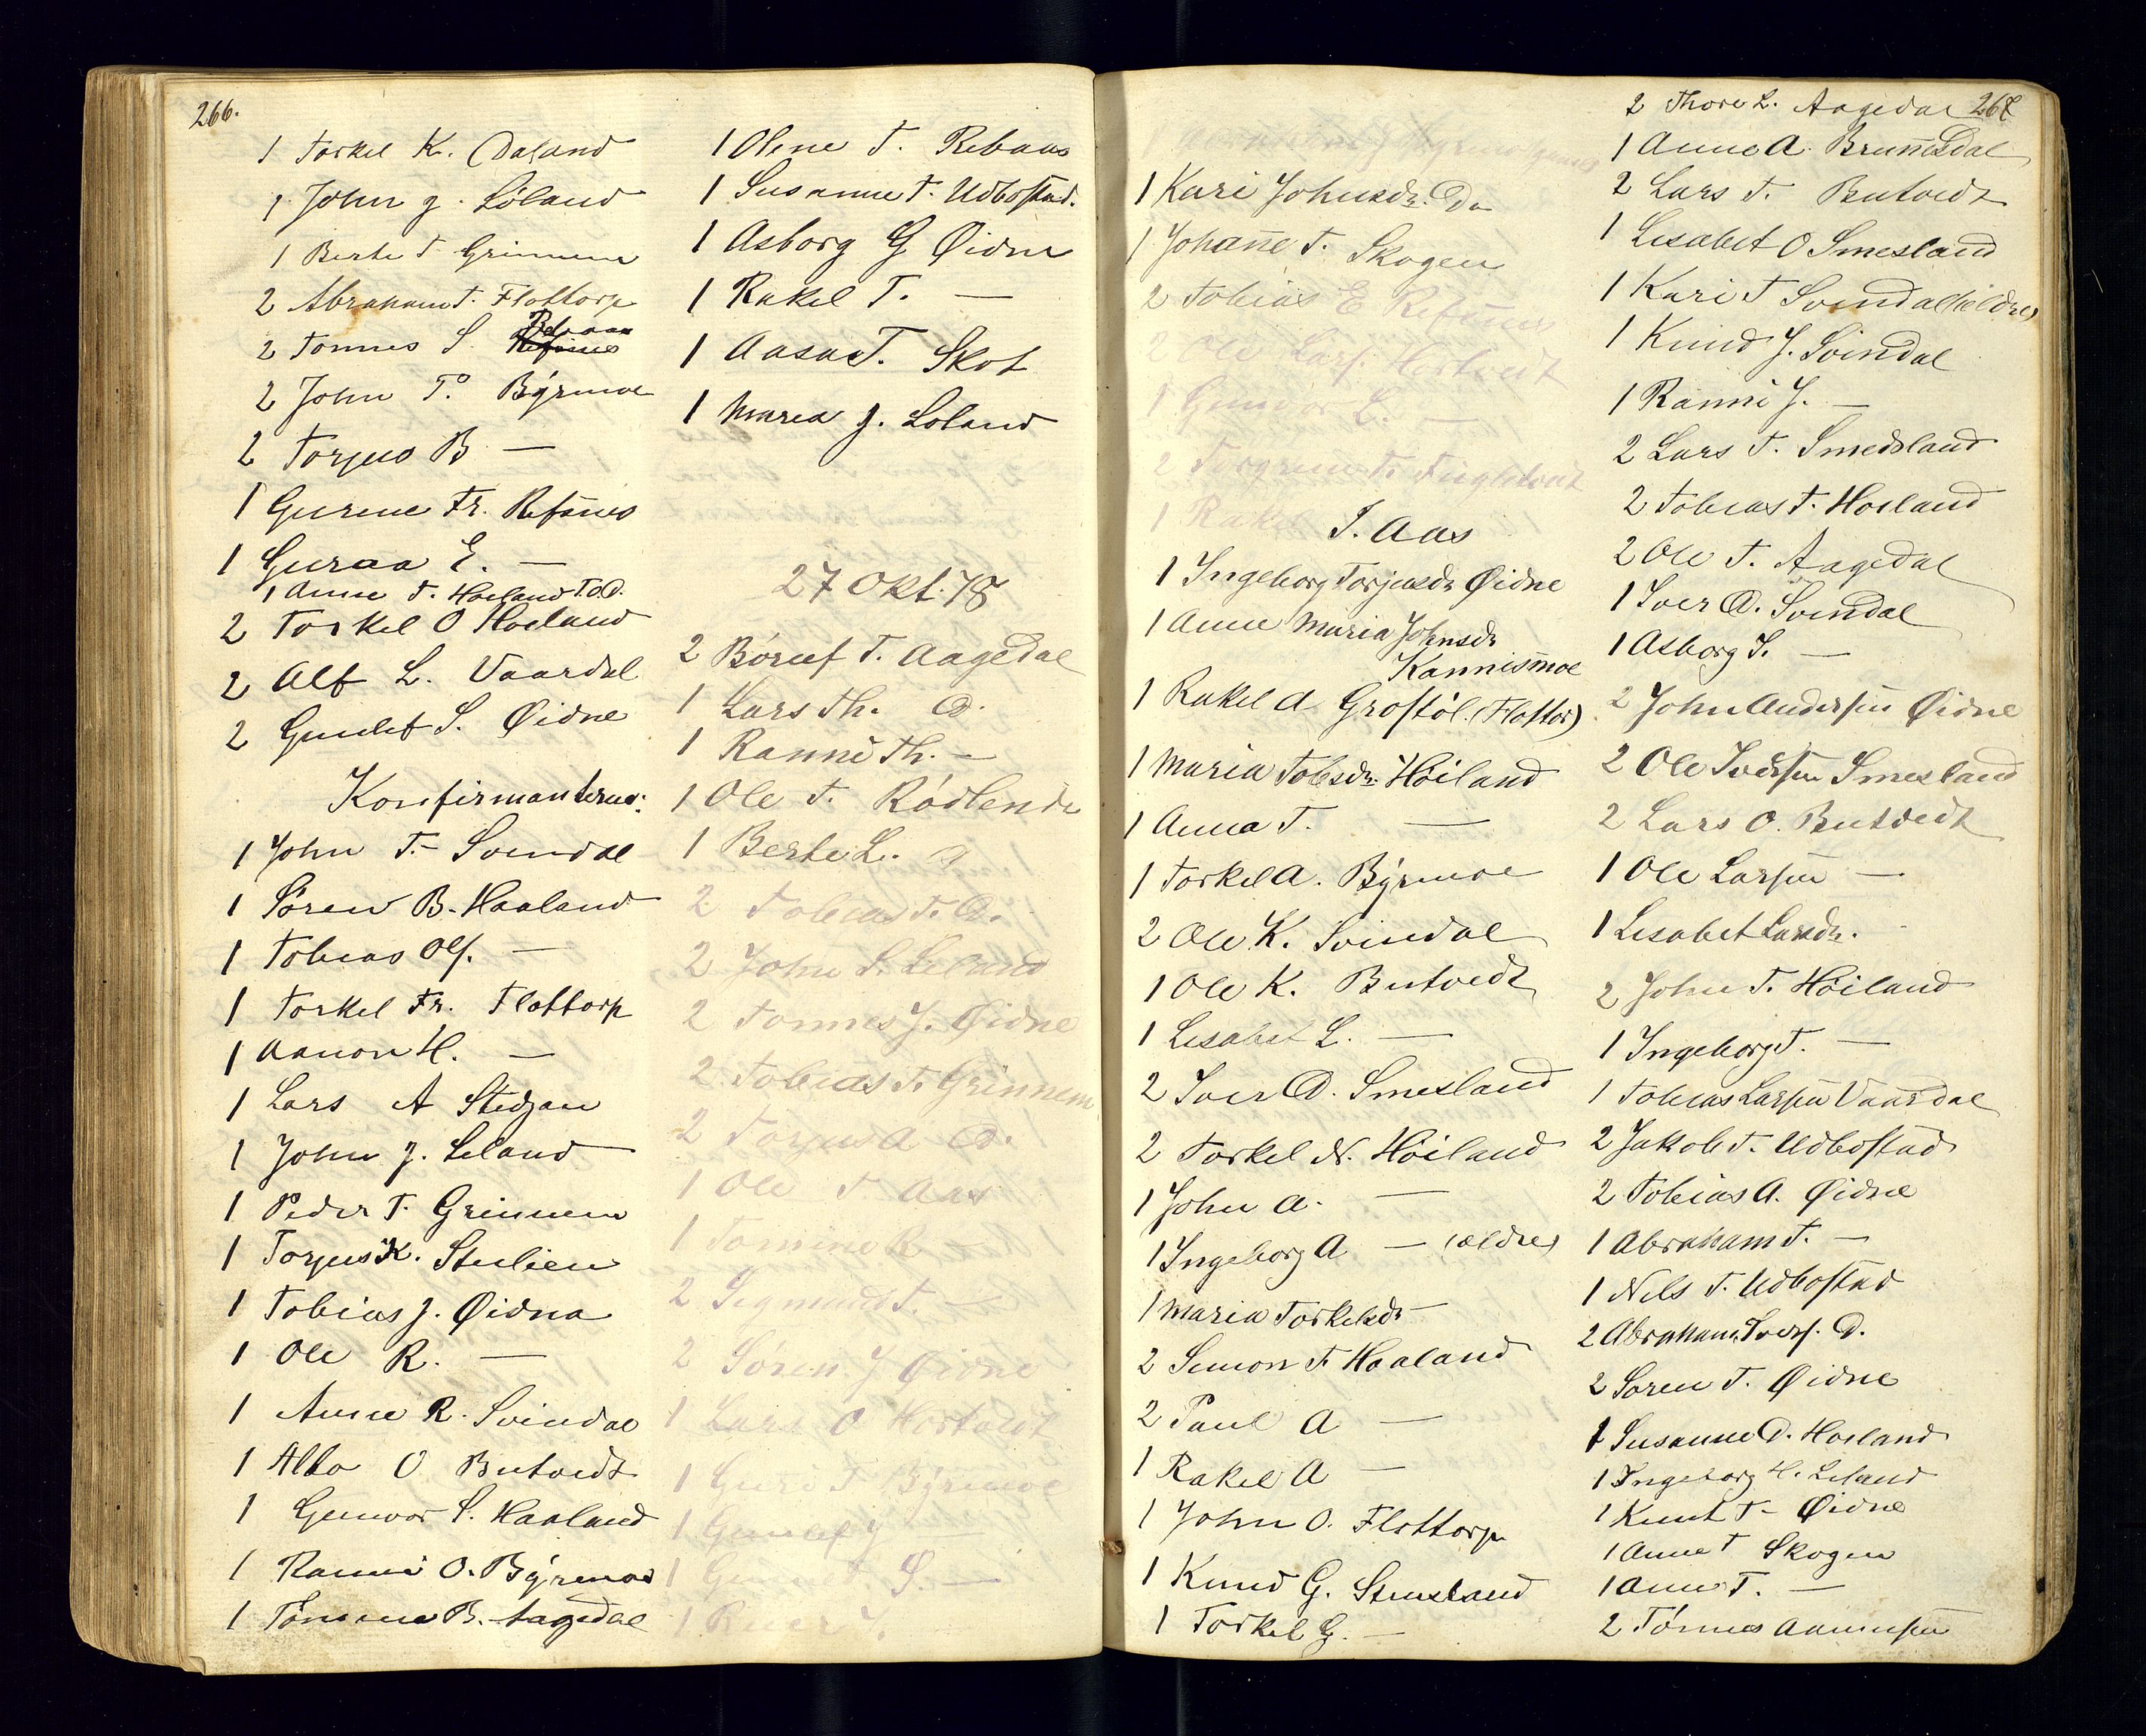 266.
1 Torkel K. Daland
1 John G. Løland
1 Berte T Grinnem
2 Abraham T. Flottorp
2 Tønnes S. Rebaas
2 John T. Byrmoe
2 Torjus B —
1 Gurine Fr. Refsnes
1 Guraa E. —
1 Anne T. Høiland T.O.D.
2 Torkel O Høiland
2 Alf L. Vaardal
2 Gunlef S. Øidne
Konfirmanterne:
1 John T. Svindal
1 Søren B. Haaland
1 Tobias Ols. —
1 Torkel Fr. Flottorp
1 Aanon H. —
1 Lars A Stedjan
1 John J. Leland
1 Peder T. Grinnem
1 Torjus K. Stulien
1 Tobias J. Øidna
1 Ole R. —
1 Anne R. Svindal
1 Alto O Butvedt
1 Gunvor S. Haaland
1 Ranni O. Byrmoe
1 Tomine B. Aagedal
1 Olene T. Rebaas
1 Susanne T. Udbøstad.
1 Asborg G Øidne
1 Rakel T. —
1 Aasa T. Skot
1 Maria J. Løland
27 Okt. 78
2 Børuf T. Aagedal
1 Lars Th. D.
1 Ranni Th. —
1 Ole T. Rødlende
1 Berte L.
2 Tobias T. D.
2 John S. Leland
2 Tønnes J. Øidne
2 Tobias T. Grinnem
2 Torjus A D.
1 Ole T Aas
1 Tomine R —
2 Sigmund T. —
2 Søren J Øidne
1 Lars O Hortvedt
1 Guri T Byrmoe
1 Gunlef J
1 S. —
1
1 Kari Johnsdr. Do
1 Johanne T. Skogen
2 Tobias E Refsnes
2 Ole Lars. Hortvedt
1 Gunvor L. —
2 Torgrim T. Fuglestvedt
1 Rakel
T. Aas
1 Ingeborg Torjusdr Øidne
1 Anne Maria Johnsdr
Kannismoe
1 Rakel A Grostøl. (Flottor)
1 Maria Tobsdr. Høiland
1 Anna T. —
1 Torkel A. Byrmoe
2 Ole K. Svindal
1 Ole K. Butvedt
1 Lisabet L. —
2 Iver D. Smesland
2 Torkel N. Høiland
1 John A. —
1 Ingeborg A — (ældre)
1 Maria Torkelsdr —
2 Simon T. Haaland
2 Paul A —
1 Rakel A —
1 John O. Flottorp
1 Knud G. Stensland
1 Torkel G. —
2 Thore L. Aagedal 267
1 Anne A. Brunnesdal
2 Lars T. Butvedt
1 Lisabet O Smesland
1 Kari T Svindal (ældre)
1 Knud J. Svindal
1 Ranni J. —
2 Lars T. Smedsland
2 Tobias T. Høiland
2 Ole T. Aagedal
1 Iver D. Svindal
1 Asborg I. —
2 John Andersen Øidne
2 Ole Iversen Smesland
2 Lars O. Butvedt
1 Ole Larsen —
1 Lisabet Larsdr. -
2 John T. Høiland
1 Ingeborg T. —
1 Tobias Larsen Vaardal
2 Jakob T. Udbøstad
2 Tobias A. Øidne
1 Abraham T. —
1 Nels T. Udbøstad
2 Abraham Ivers. D.
2 Søren T. Øidne
1 Susanne D. Høiland
1 Ingeborg H. Leland
1 Knut T- Øidne
1 Anne T Skogen
1 Anne T. —
2 Tønnes Aanensen